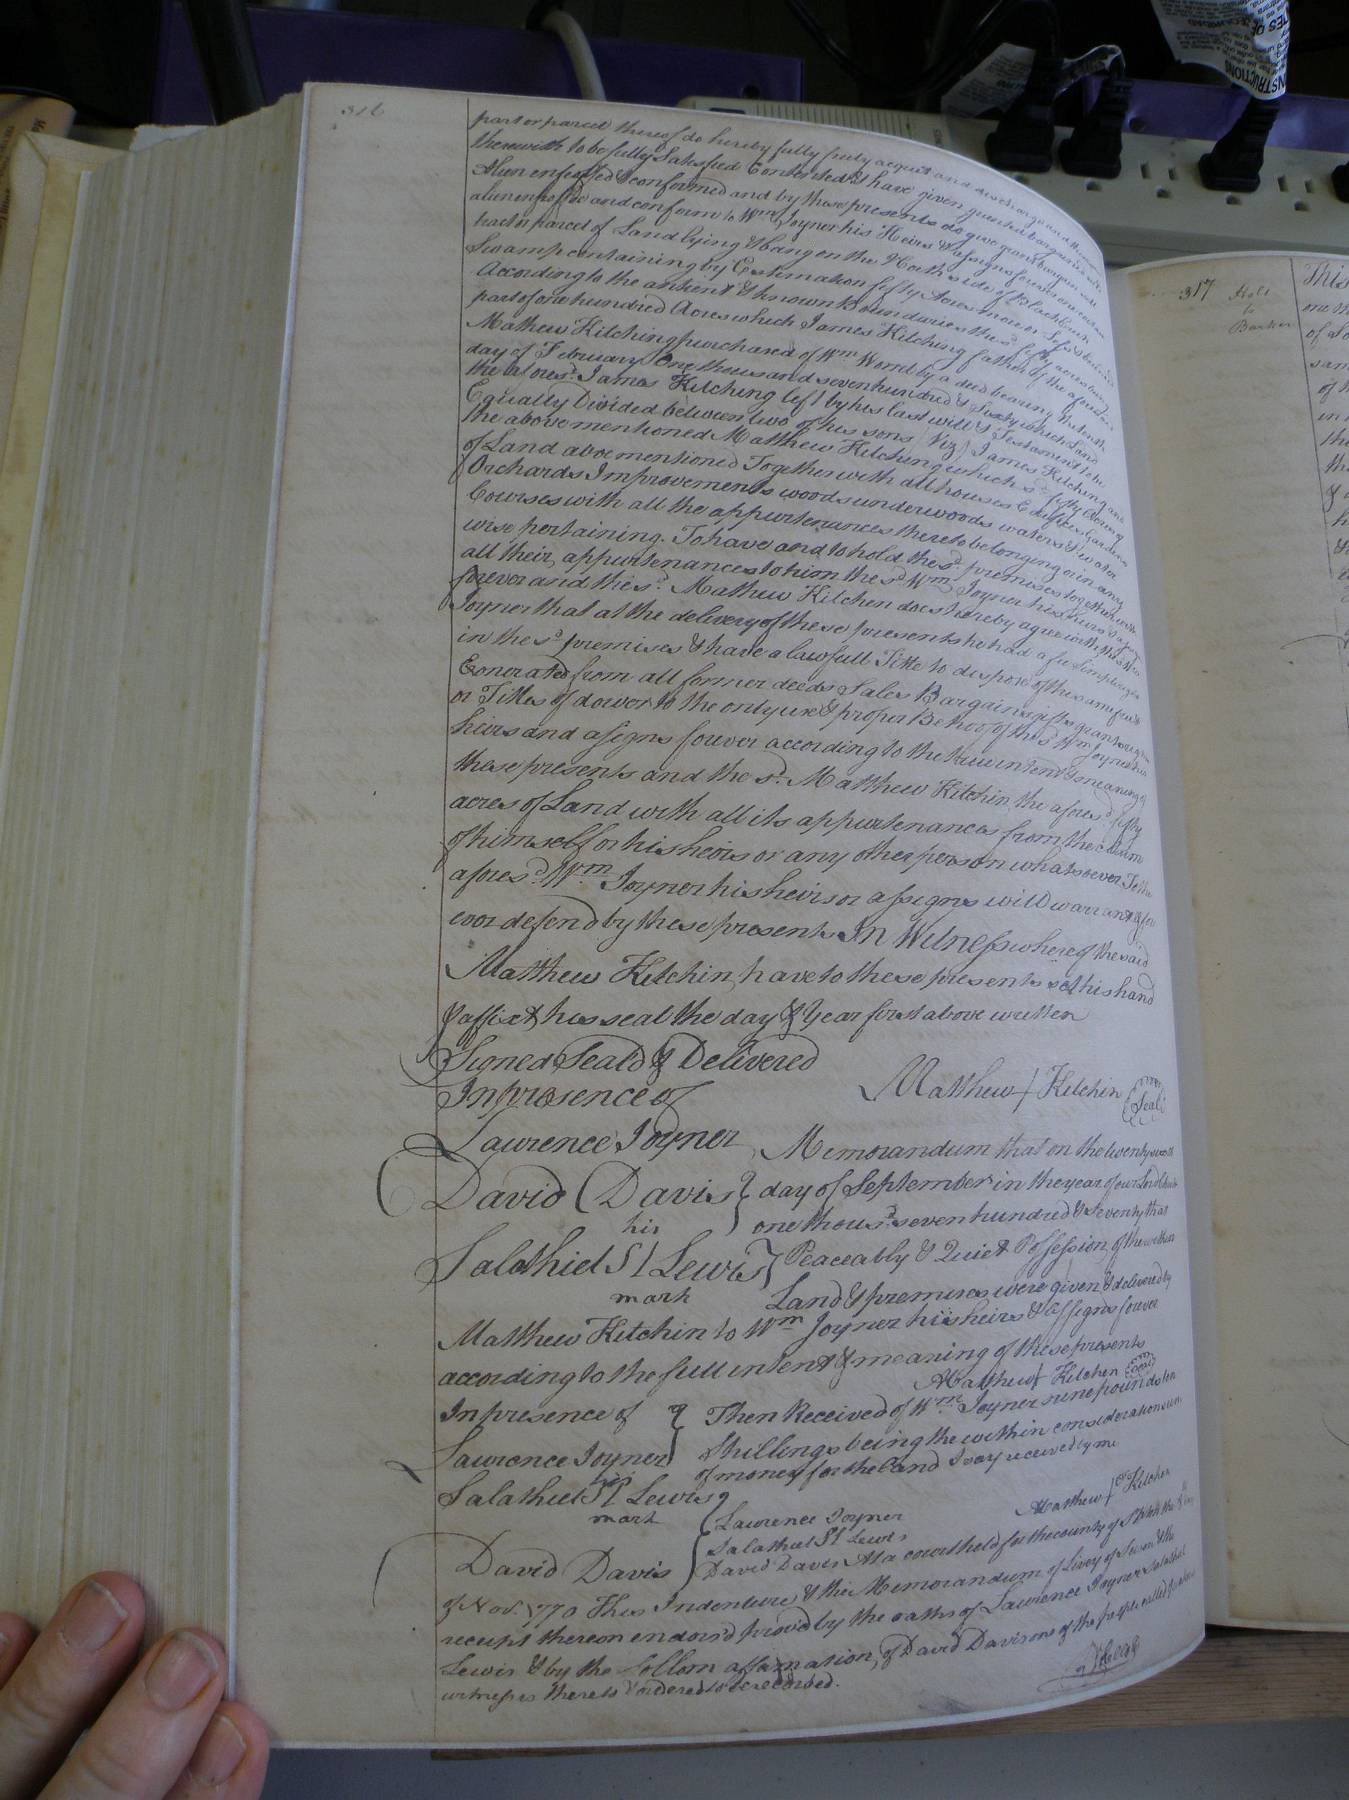 316
part or parcel thereof do hereby fully freely acquit and discharge and
therewith to be fully Satisfied Contented & have given granted bargained
Alien enfeoffed & conformed and by these presents do give grant bargain
alien enfeoffe and conform to Wm Joyner his Heirs & assigns forever one certain
tract or parcel of Land lying & being on the North side of Blackburn
Swamp containing by Estimation fifty Acres more or Less
According to the antient & known Boundaries the sd fifty acres being
part of one hundred Acres which James Kitching father of the aforesaid
Mathew Kitching purchased of Wm Worrel by a deed bearing the tenth
day of February One thousand seven hundred & Sixty which Land
the afores.d James Kitching left by his last will & Testament to be
Equally Divided between two of his sons (Viz) James Kitching and
the above mentioned Matthew Kitching which sd fifty Acres
of Land above mentioned Together with all houses Edifices Gardens
Orchards Improvements woods underwoods waters & water
Courses with all the appurtenances thereto belonging or in any
wise pertaining. To have and to hold the sd. premises together with
all their appurtenances to him the sd Wm Joyner his heirs &
forever and the sd. Mathew Kitchen does hereby agree with the sd Wm
Joyner that at the delivery of these presents he had a fee Simple
in the sd premises & have a lawfull Title to dispose of the same
Exonerated from all former deeds Sales Bargains gifts grants
or Titles of dower to the only use & proper Behoof of the sd Wm Joyner
heirs and assigns forever according to the true intent & meaning of
these presents and the sd. Matthew Kitchin the afores.d fifty
acres of Land with all its appurtenances from the claim
of himself or his heirs or any other person whatsoever
afores.d Wm Joyner his heirs or assigns will warrant & for
ever defend by these presents In Witness whereof the said
Matthew Kitchin have to these presents set his hand
& affixt his seal the day & Year first above written
Signed Seald & Delivered
In presence of
Matthew + Kitchin Seal
Lawrence Joyner
David Davis
his
Salathiel S L Lewis
mark
Memorandum that on the twenty
day of September in the year of our Lord
one thous.d seven hundred & seventy that
Peaceably & Quiet Possession of the within
Land & premises were given & delivered by
Matthew Kitchin to Wm Joyner his heirs & assigns forever
according to the full intent & meaning of these presents
Matthew + Kitchen Seal
In presence of
Lawrence Joyner
his
Salathiel S L Lewis
mark
David Davis
Then Received of Wm Joyner nine pounds ten
Shillings being the within consideration
of money for the Land I say received by me
Matthew + Kitchen
Lawrence Joyner
Salathiel S L Lewis
David Davis
At a court held for the county of
of Nov. 1770 This Indenture & the Memorandum of Livery of Seisen & the
receipt thereon endors'd prov'd by the oaths of Lawrence Joyner Salathiel
Lewis & by the Sollem affirmation of David Davis one of the people called
witnesses thereto & ordered to be recorded.
317
Holt
to
Barker
This
one
of